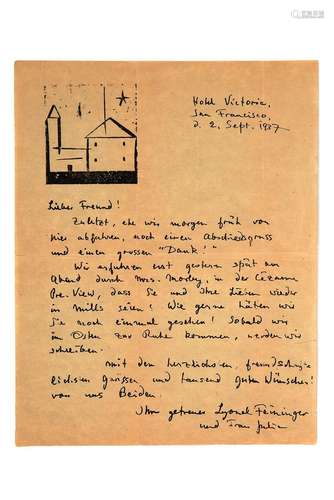 Hotel Victoria,
San Francisco,
d. 2. Sept. 1937
Lieber Freund!
Zuletzt, ehe wir morgen früh von
hier abfahren, noch einen Abschiedsgruss
und einen grossen "Dank!"
Wir erfuhren erst gestern spät am
Abend durch Mrs. Morley, in der Cézanne
Pre-View, dass Sie und Ihre Lieben wieder
in Mills seien! Wie gerne hätten wir
Sie noch einmal gesehen! Sobald wir
im Osten zur Ruhe kommen, werden wir
schreiben.
Mit den herzlichsten, freundschaft-
lichsten Grüssen und tausend guten Wünschen!
von uns Beiden.
Ihr getreuer Lyonel Feininger
und Frau Julia